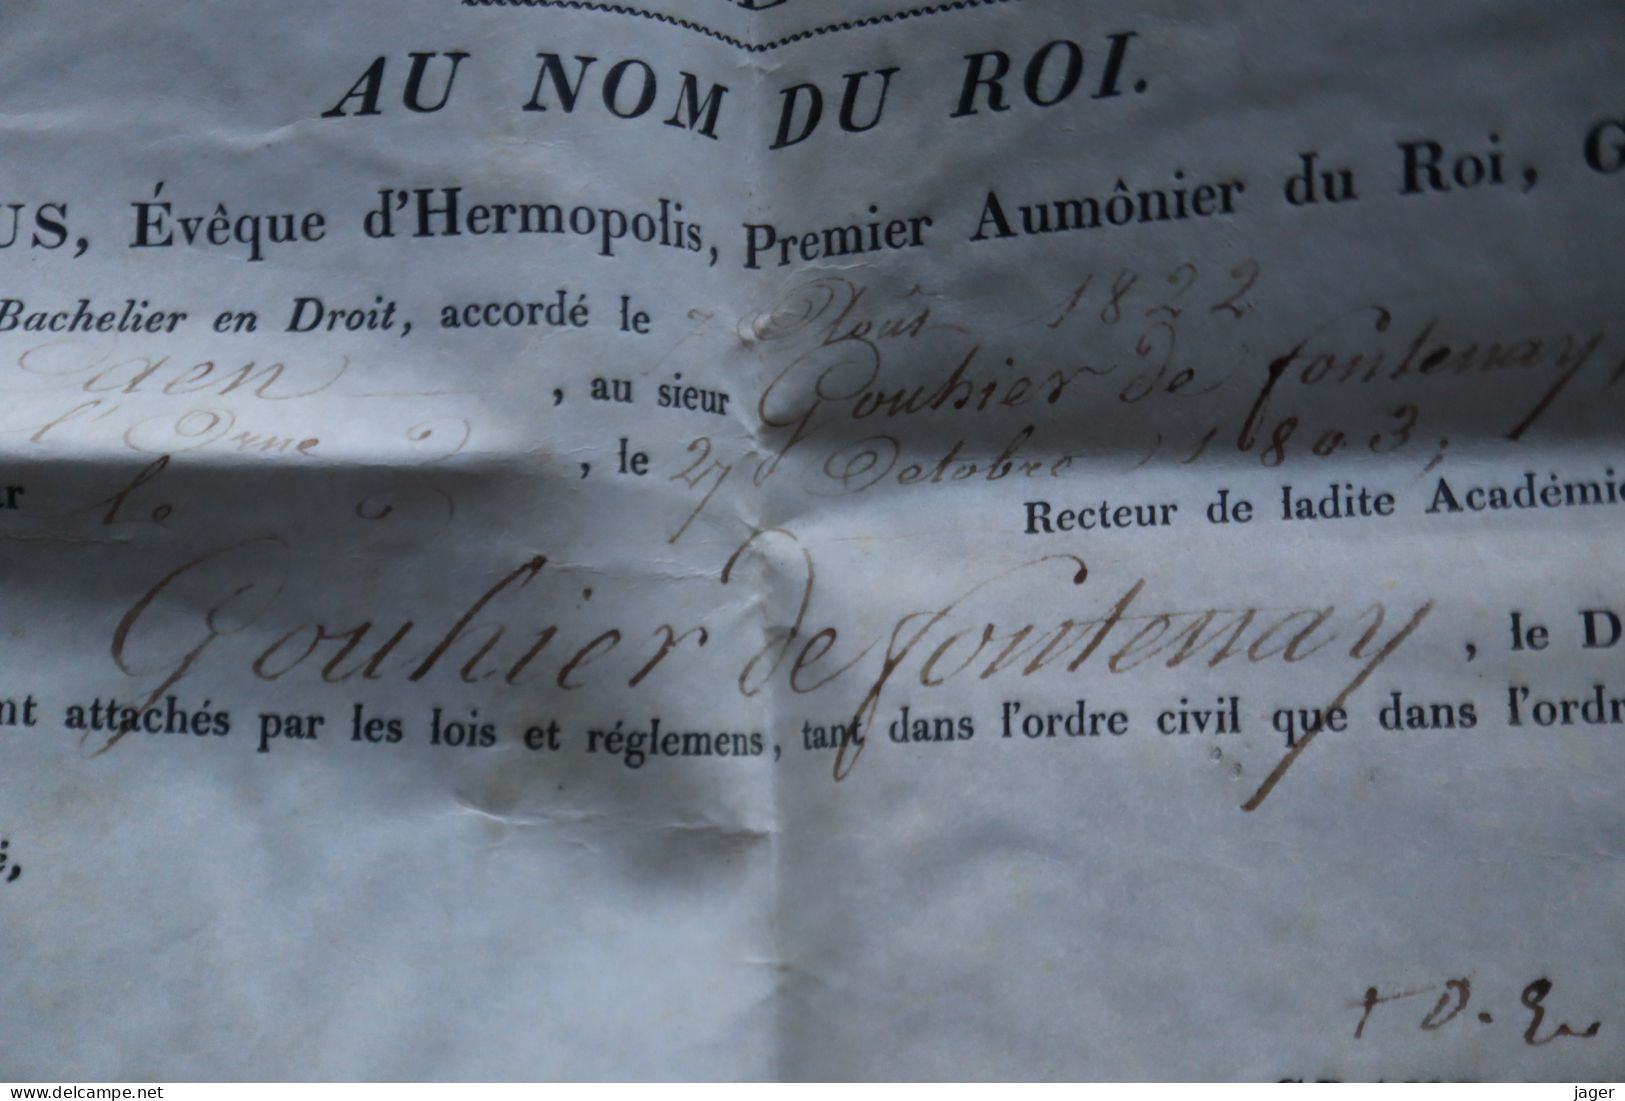 AU NOM DU ROI.
US, Évêque d'Hermopolis, Premier Aumônier du Roi, G
Bachelier en Droit, accordé le 7 Août 1822
Caen, au sieur Gouhier de fontenay,
l'Orne, le 27 Octobre 1803;
ar le Recteur de ladite Académie
Gouhier de fontenay, le D
nt attachés par les lois et réglemens, tant dans l'ordre civil que dans l'ordr
é,
+ D. Ev
delcampe.net
jager